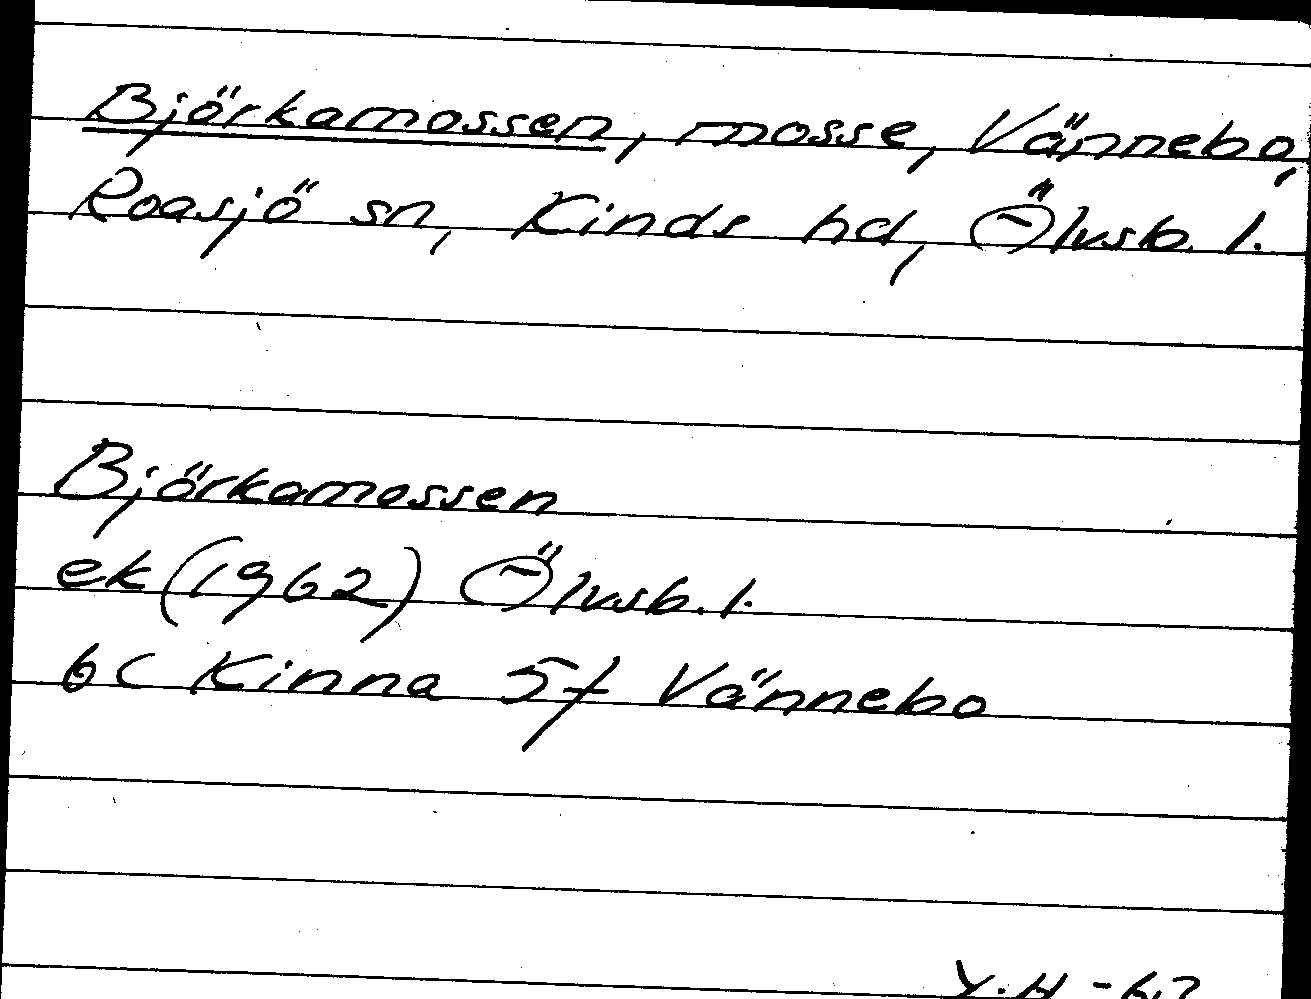 Björkamossen, mosse, Vännebo,
Roasjö sn, Kinds hd, Älvsb. l.
Björkamossen
ek (1962) Älvsb. l.
6C Kinna 5f Vännebo